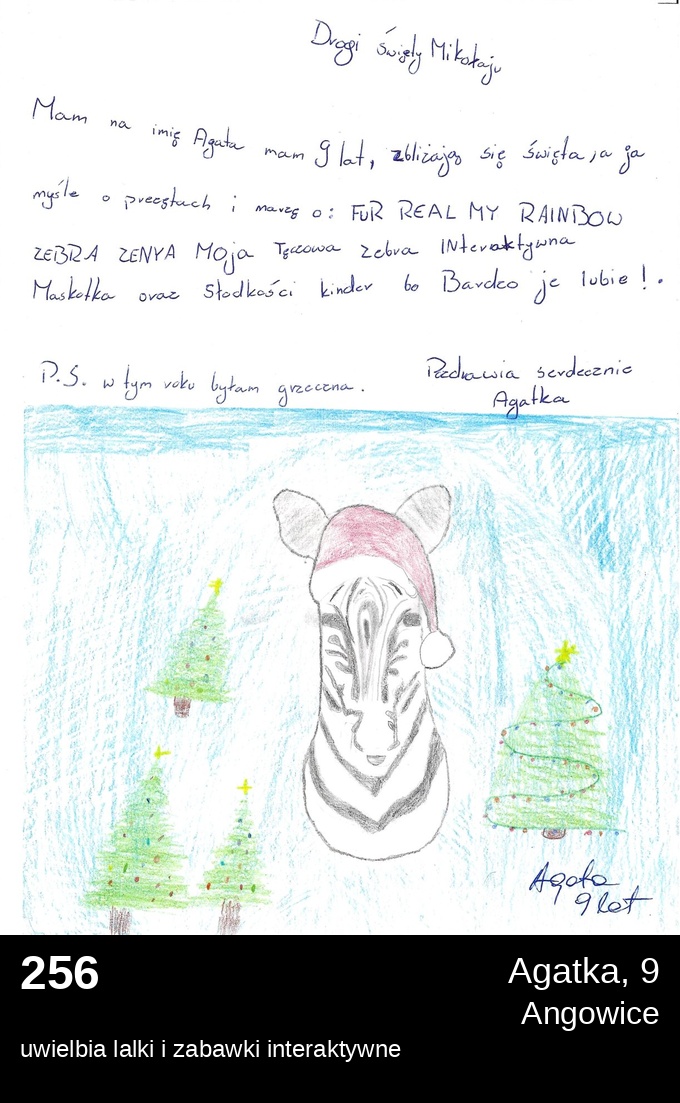 Drogi święty Mikołaju
Mam na imię Agata mam 9 lat, zbliżają się święta, a ja
myśle o prezętach i marzę o: FUR REAL MY RAINBOW
ZEBRA ZENYA Moja Tęczowa zebra INteraktywna
Maskotka oraz Słodkości kinder bo Bardzo je lubie!.
P.S. w tym roku byłam grzeczna.
Pozdrawia serdecznie
Agatka
Agata
9 lat
256
Agatka, 9
Angowice
uwielbia lalki i zabawki interaktywne